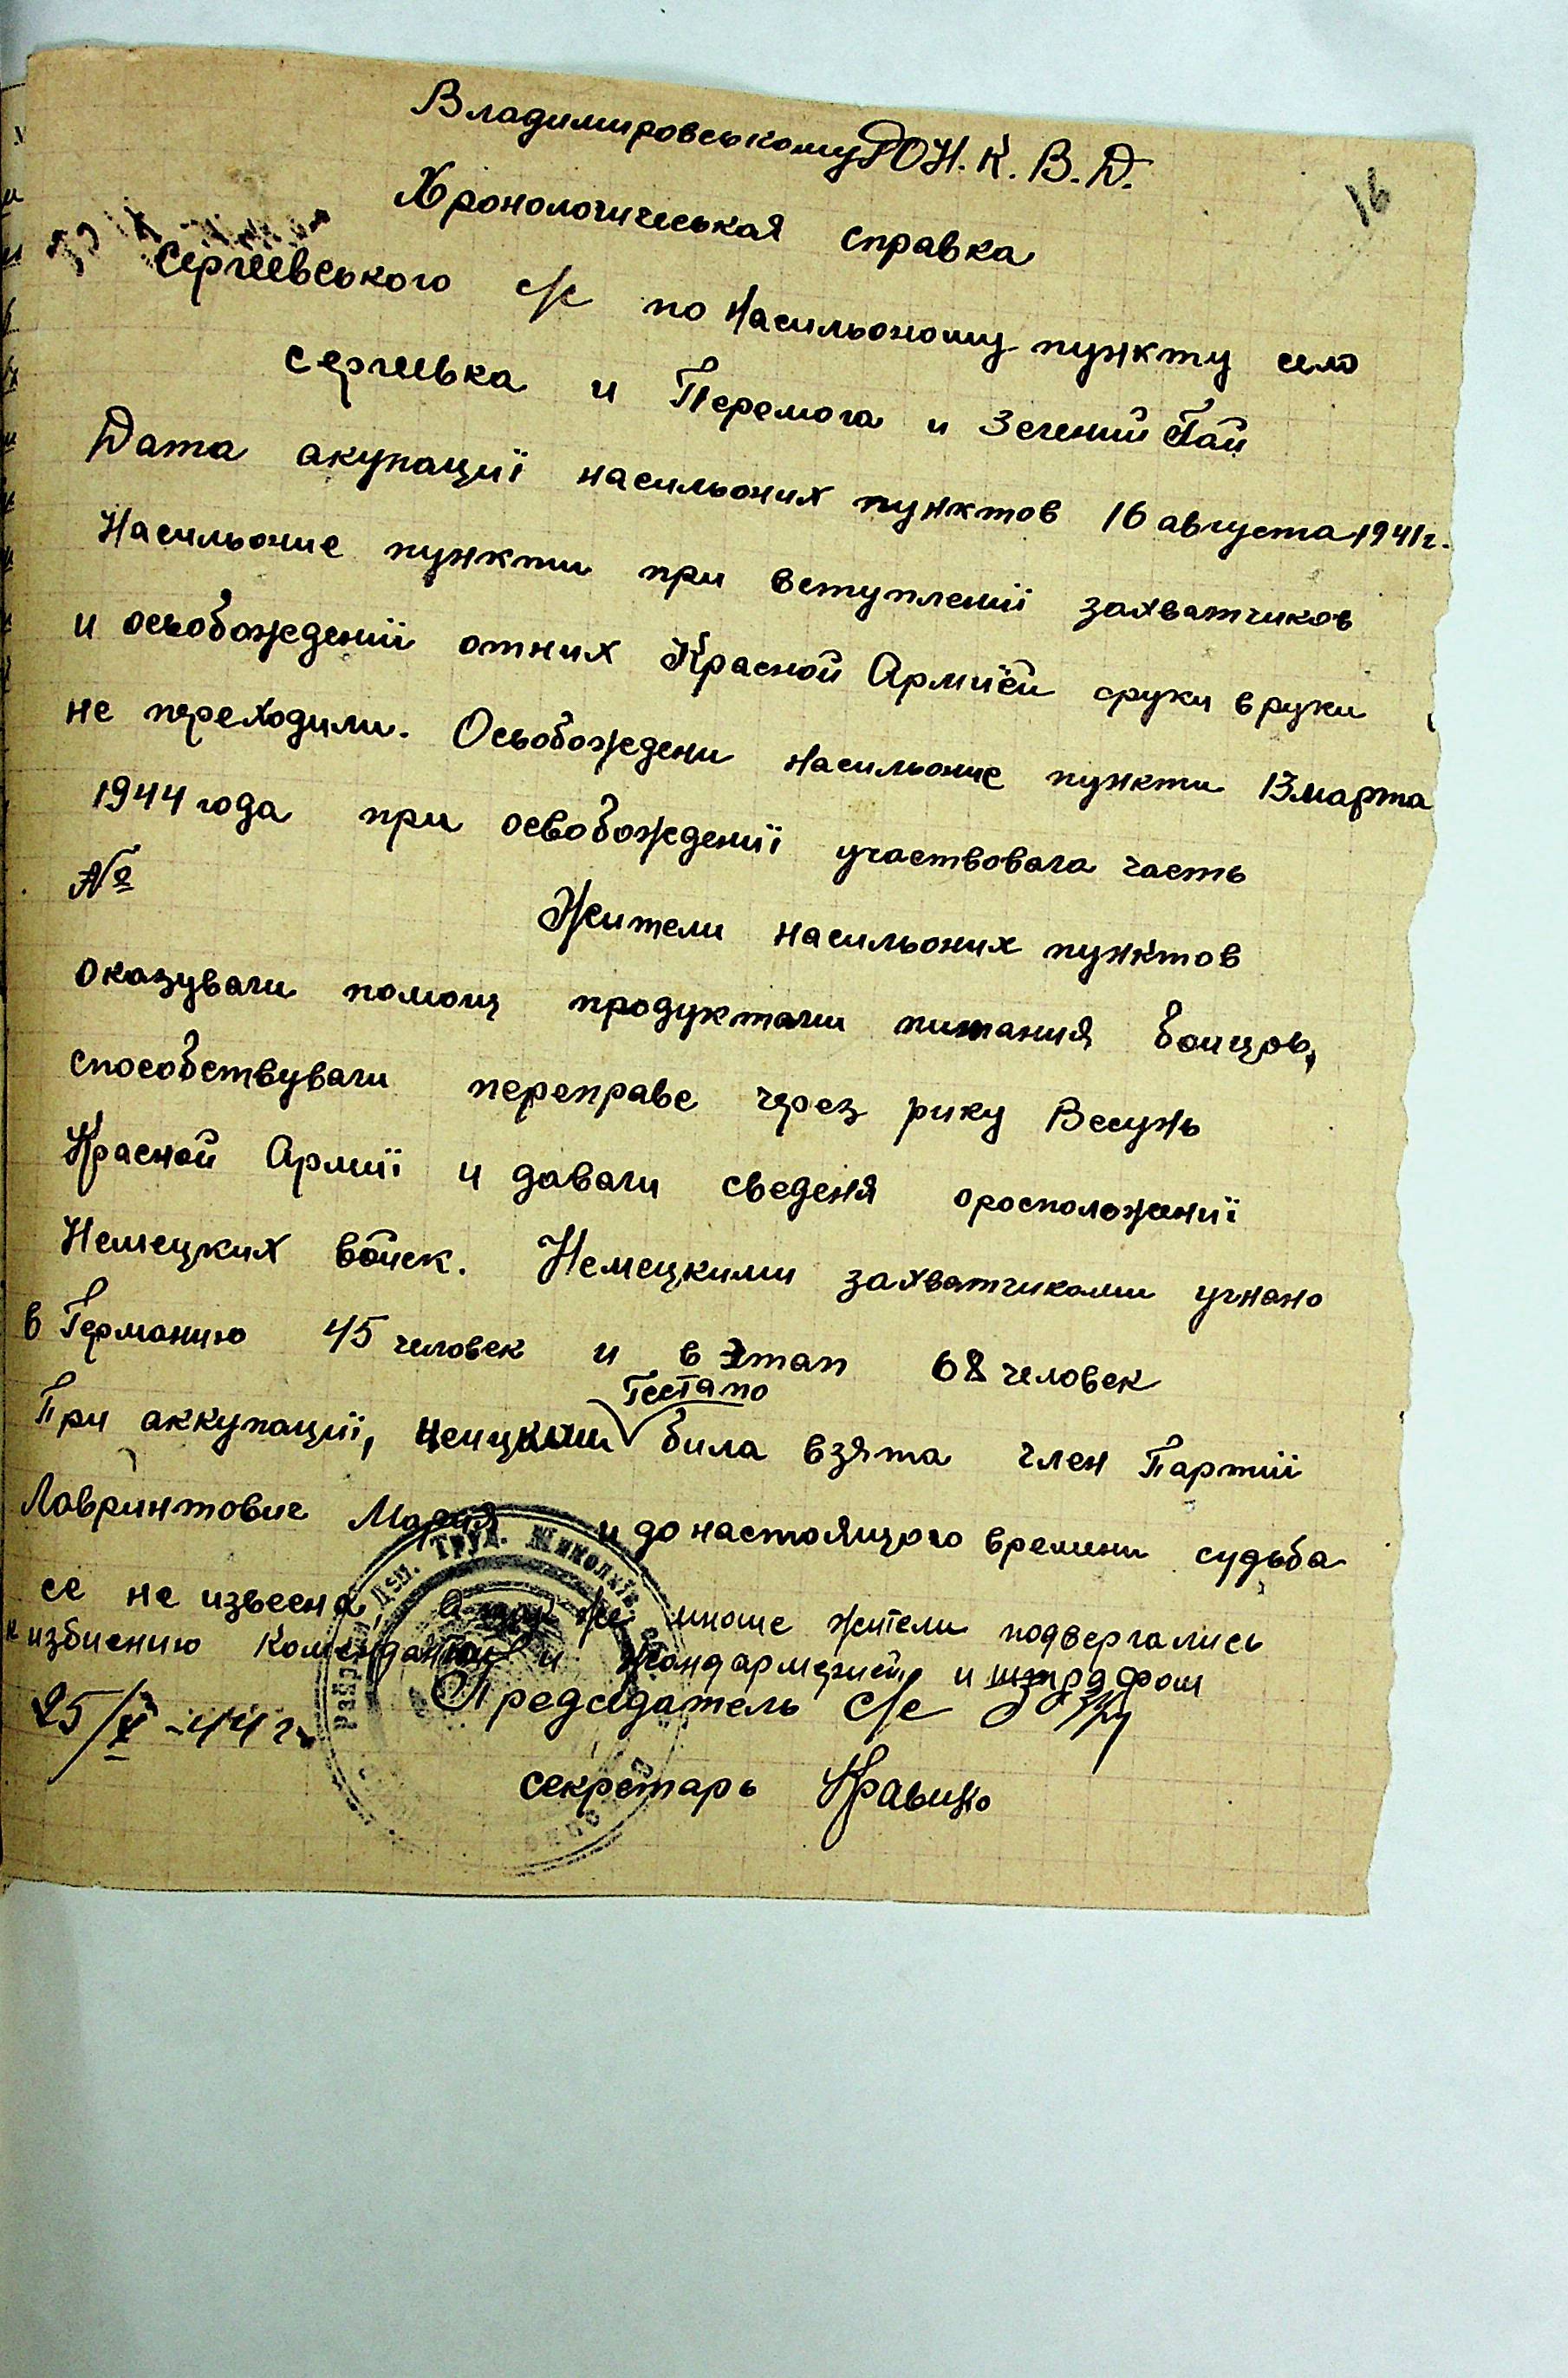 Владимировському РО Н.К.В.Д.
16
Хронологичеськая справка
Сергеевського с/с по Насильоному пункту село
Сергеевка и Перемога и Зелений Гай
Дата акупации насильоних пунктов 16 августа 1941 г.
Насильоние пункти при вступлении захватчиков
и освобождении отних Красной Армией сруки вруки
не переходили. Освобождени насильоние пункти 13 марта
1944 года при освобождении участвовала часть
№
Жители насильоних пунктов
оказували помощ продуктами питания бойцов,
способствували переправе через рику Весунь
Красной Армії и давали сведеня оросположениї
Немецких войск. Немецкими захватчиками угнано
в Германию 45 человек и в Этап 68 человек
Гестапо
При аккупациї, немцкими била взята член Партії
Лавринтович Мария и до настоящого времени судьба
её не извесна, а так же многие жители подвергались
к избиению Комендантом и Жандармерией и штрафом
Председатель с/с
25/X-44 г.
секретарь Кравцко
Деп. Труд. Миколаїв